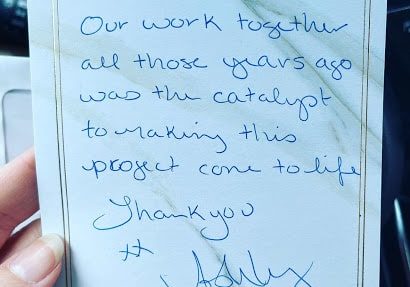 Our work together
all those years ago
was the catalypt
to making this
project come to life
Thankyou
xx
Ashley